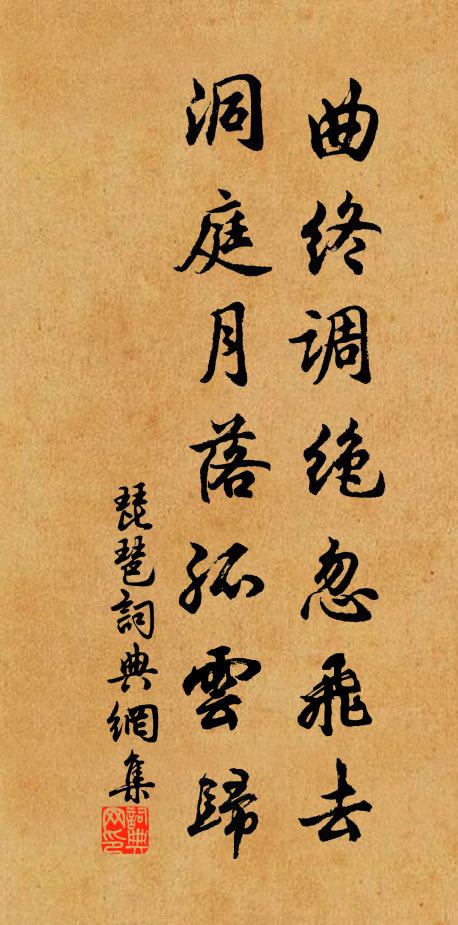 曲终调绝忽飛去
洞庭月落孤雲歸
琵琶詞典網集
詞典網印